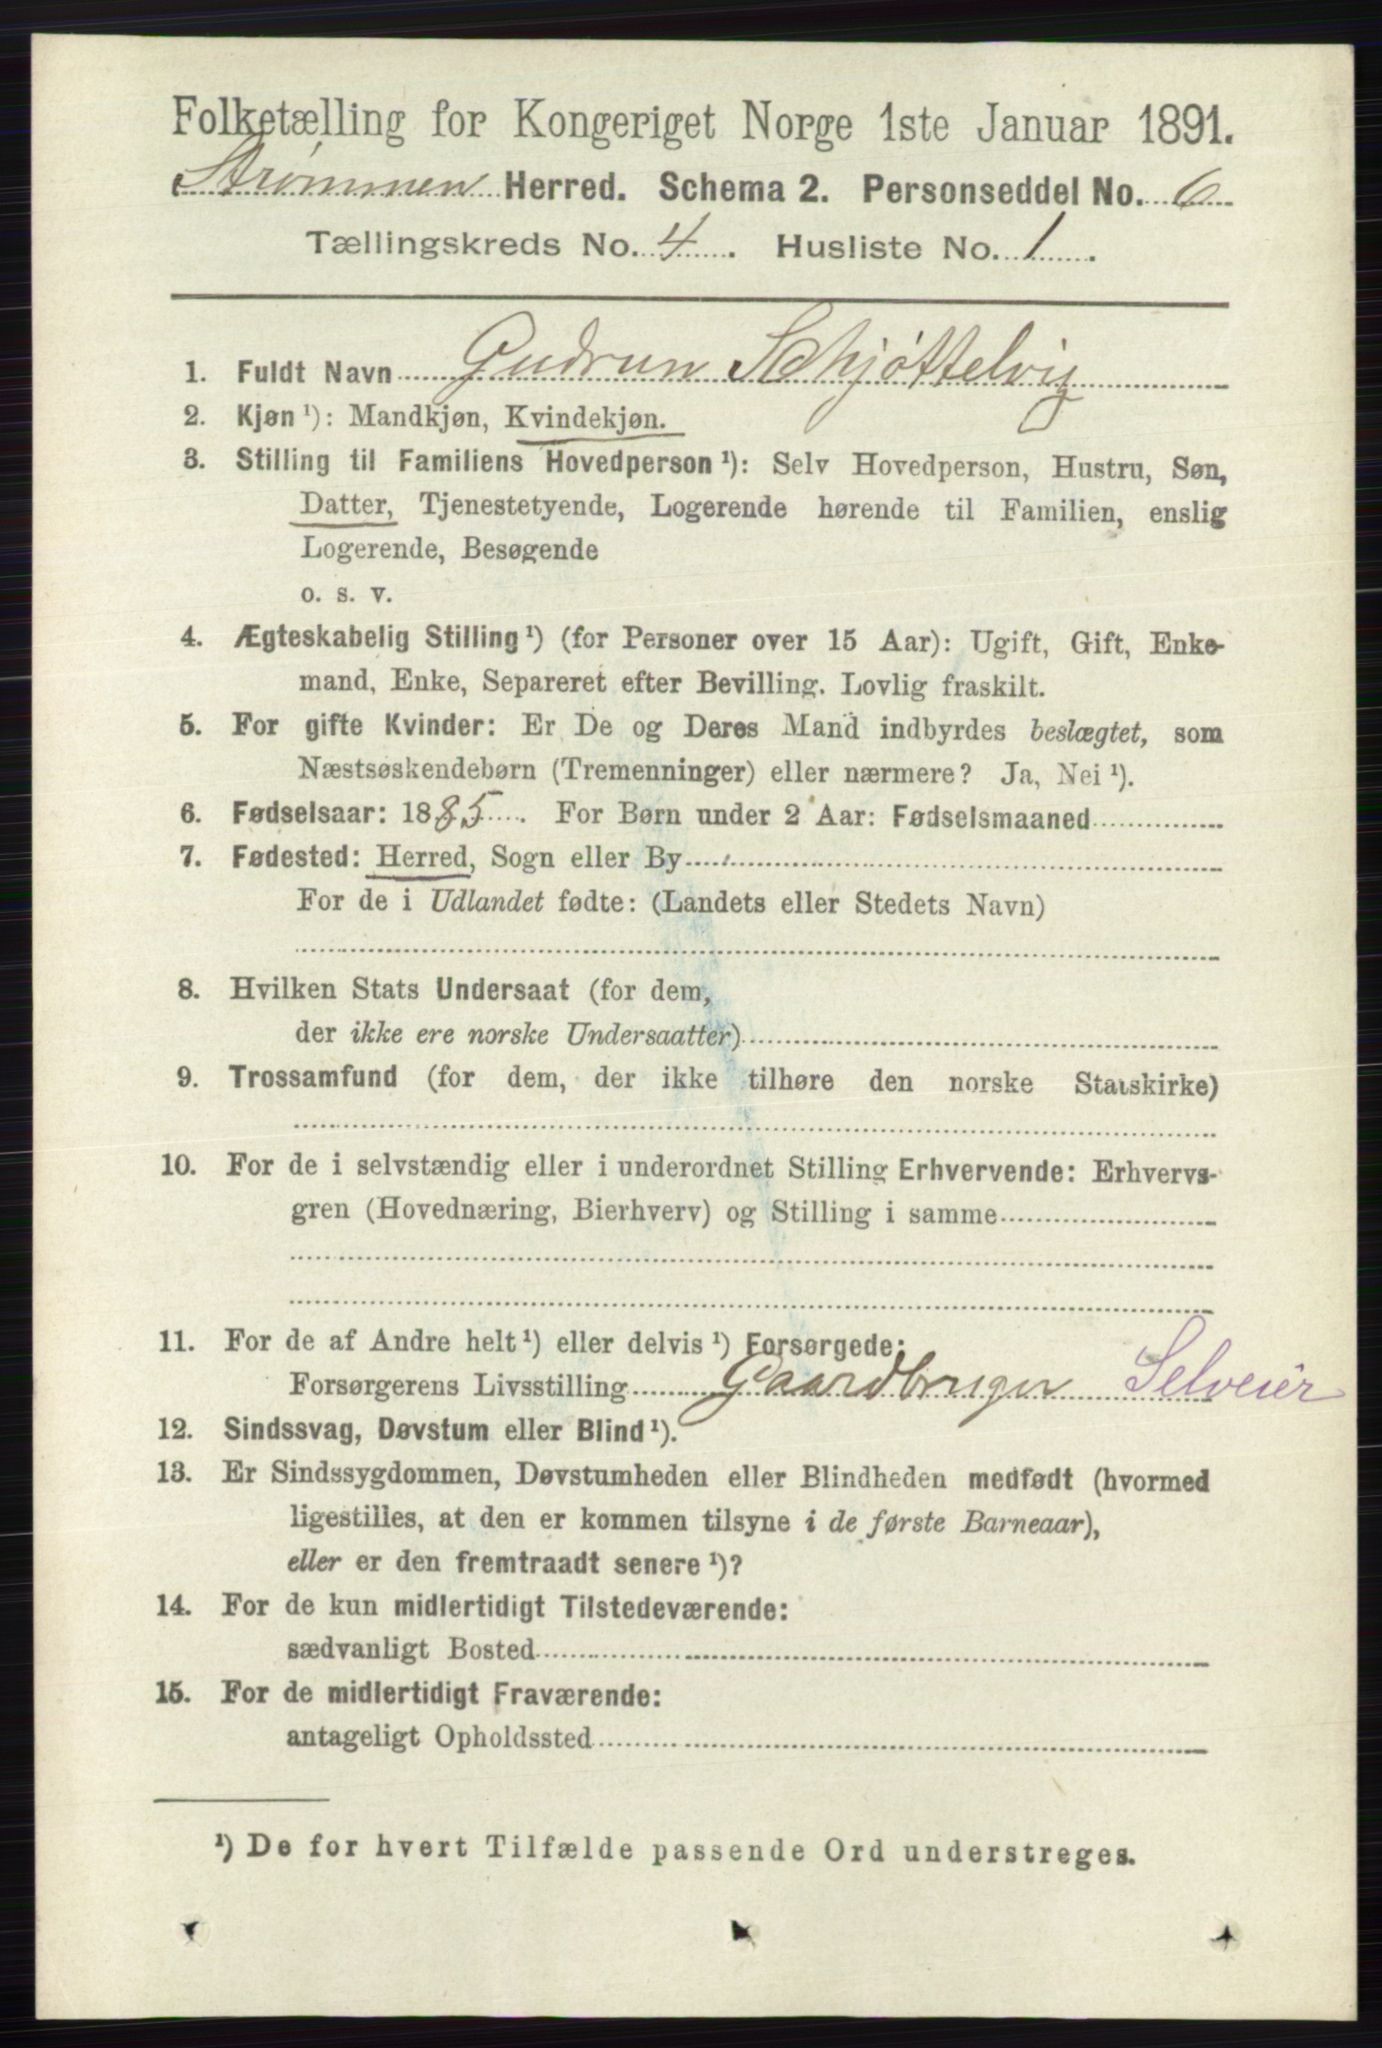 Folketælling for Kongeriget Norge 1ste Januar 1891.
Strømmen Herred. Schema 2. Personseddel No. 6
Tællingskreds No. 4. Husliste No. 1.
1. Fuldt Navn Gudrun Schjøttelvig
2. Kjøn ¹): Mandkjøn, Kvindekjøn.
3. Stilling til Familiens Hovedperson ¹): Selv Hovedperson, Hustru, Søn,
Datter, Tjenestetyende, Logerende hørende til Familien, enslig
Logerende, Besøgende
o. s. v.
4. Ægteskabelig Stilling ¹) (for Personer over 15 Aar): Ugift, Gift, Enke-
mand, Enke, Separeret efter Bevilling. Lovlig fraskilt.
5. For gifte Kvinder: Er De og Deres Mand indbyrdes beslægtet, som
Næstsøskendebørn (Tremenninger) eller nærmere? Ja, Nei ¹).
6. Fødselsaar: 1885. For Børn under 2 Aar: Fødselsmaaned
7. Fødested: Herred, Sogn eller By
For de i Udlandet fødte: (Landets eller Stedets Navn)
8. Hvilken Stats Undersaat (for dem,
der ikke ere norske Undersaatter)
9. Trossamfund (for dem, der ikke tilhøre den norske Statskirke)
10. For de i selvstændig eller i underordnet Stilling Erhvervende: Erhvervs-
gren (Hovednæring, Bierhverv) og Stilling i samme
11. For de af Andre helt ¹) eller delvis ¹) Forsørgede:
Forsørgerens Livsstilling Gaardbruger Selveier
12. Sindssvag, Døvstum eller Blind ¹).
13. Er Sindssygdommen, Døvstumheden eller Blindheden medfødt (hvormed
ligestilles, at den er kommen tilsyne i de første Barneaar),
eller er den fremtraadt senere ¹)?
14. For de kun midlertidigt Tilstedeværende:
sædvanligt Bosted
15. For de midlertidigt Fraværende:
antageligt Opholdssted
¹) De for hvert Tilfælde passende Ord understreges.